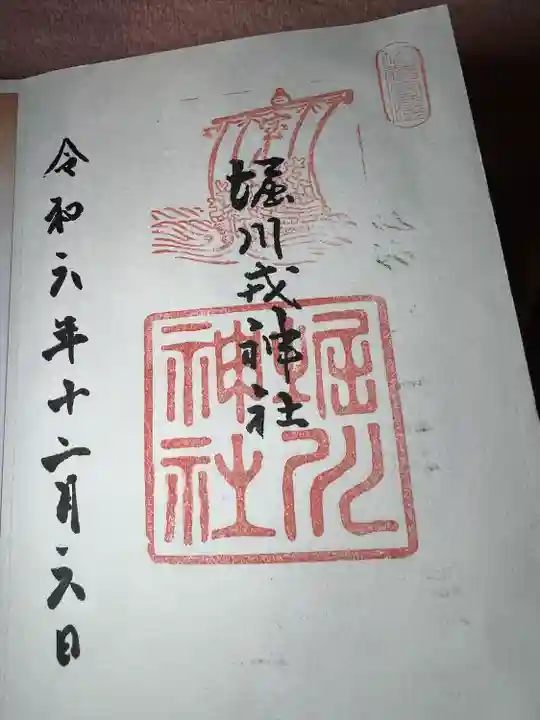 堀川戎神社
堀川
神社
令和六年十二月六日